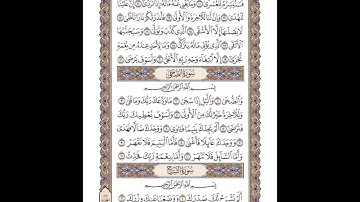 فَسَنُيَسِّرُهُ لِلْعُسْرَىٰ ۝ وَمَا يُغْنِي عَنْهُ مَالُهُ إِذَا تَرَدَّىٰ ۝ إِنَّ عَلَيْنَا
لَلْهُدَىٰ ۝ وَإِنَّ لَنَا لَلْآخِرَةَ وَالْأُولَىٰ ۝ فَأَنذَرْتُكُمْ نَارًا تَلَظَّىٰ ۝
لَا يَصْلَاهَا إِلَّا الْأَشْقَى ۝ الَّذِي كَذَّبَ وَتَوَلَّىٰ ۝ وَسَيُجَنَّبُهَا
الْأَتْقَى ۝ الَّذِي يُؤْتِي مَالَهُ يَتَزَكَّىٰ ۝ وَمَا لِأَحَدٍ عِندَهُ مِن نِّعْمَةٍ
تُجْزَىٰ ۝ إِلَّا ابْتِغَاءَ وَجْهِ رَبِّهِ الْأَعْلَىٰ ۝ وَلَسَوْفَ يَرْضَىٰ ۝
سُورَةُ الضُّحَىٰ
بِسْمِ اللَّهِ الرَّحْمَٰنِ الرَّحِيمِ
وَالضُّحَىٰ ۝ وَاللَّيْلِ إِذَا سَجَىٰ ۝ مَا وَدَّعَكَ رَبُّكَ وَمَا قَلَىٰ ۝
وَلَلْآخِرَةُ خَيْرٌ لَّكَ مِنَ الْأُولَىٰ ۝ وَلَسَوْفَ يُعْطِيكَ رَبُّكَ
فَتَرْضَىٰ ۝ أَلَمْ يَجِدْكَ يَتِيمًا فَآوَىٰ ۝ وَوَجَدَكَ ضَالًّا فَهَدَىٰ
۝ وَوَجَدَكَ عَائِلًا فَأَغْنَىٰ ۝ فَأَمَّا الْيَتِيمَ فَلَا تَقْهَرْ ۝
وَأَمَّا السَّائِلَ فَلَا تَنْهَرْ ۝ وَأَمَّا بِنِعْمَةِ رَبِّكَ فَحَدِّثْ ۝
سُورَةُ الشَّرْحِ
بِسْمِ اللَّهِ الرَّحْمَٰنِ الرَّحِيمِ
أَلَمْ نَشْرَحْ لَكَ صَدْرَكَ ۝ وَوَضَعْنَا عَنكَ وِزْرَكَ ۝